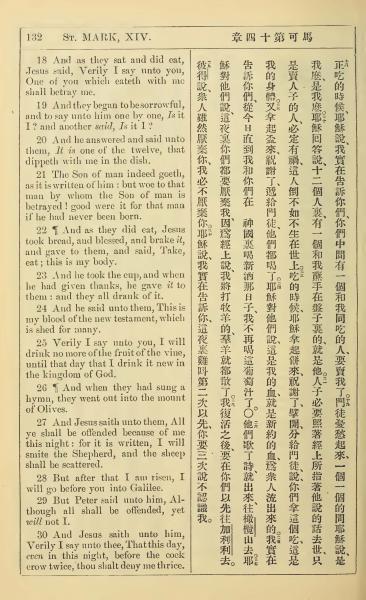 132 ST. MARK, XIV.
18 And as they sat and did eat,
Jesus said, Verily I say unto you,
One of you which eateth with me
shall betray me.
19 And they began to be sorrowful,
and to say unto him one by one, Is it
I ? and another said, Is it I ?
20 And he answered and said unto
them, It is one of the twelve, that
dippeth with me in the dish.
21 The Son of man indeed goeth,
as it is written of him : but woe to that
man by whom the Son of man is
betrayed ! good were it for that man
if he had never been born.
22 ¶ And as they did eat, Jesus
took bread, and blessed, and brake it,
and gave to them, and said, Take,
eat ; this is my body.
23 And he took the cup, and when
he had given thanks, he gave it to
them : and they all drank of it.
24 And he said unto them, This is
my blood of the new testament, which
is shed for many.
25 Verily I say unto you, I will
drink no more of the fruit of the vine,
until that day that I drink it new in
the kingdom of God.
26 ¶ And when they had sung a
hymn, they went out into the mount
of Olives.
27 And Jesus saith unto them, All
ye shall be offended because of me
this night : for it is written, I will
smite the Shepherd, and the sheep
shall be scattered.
28 But after that I am risen, I
will go before you into Galilee.
29 But Peter said unto him, Al-
though all shall be offended, yet
will not I.
30 And Jesus saith unto him,
Verily I say unto thee, That this day,
even in this night, before the cock
crow twice, thou shalt deny me thrice.
馬可第十四章
正吃的時候、耶穌說、我實在告訴你們、你們中間有一個和我同吃的人要賣我了。門徒憂愁起來、一個一個的問耶穌說、是
我麽、是我麽。耶穌回答說、十二個人裏、有一個和我蘸手在盤子裏的、就是他。人子必要照著經上所指著他說的話去世、只
是賣人子的人、必定有禍、這人倒不如不生在世上。吃的時候、耶穌拿起餅來、祝謝了、擘開、分給門徒、說、你們拿這個吃、這是
我的身體。又拿起盃來、祝謝了、遞給門徒、他們都喝了。耶穌對他們說、這是我的血、就是新約的血、為衆人流出來的。我實在
告訴你們、從今日直到我和你們在 神國裏喝新酒那日子、我不再喝這葡萄汁了。〇他們歌了詩、就出來往橄欖山去。耶
穌對他們說、這夜裏你們都要厭棄我、因為經上說、我將打牧羊的、羣羊就都散了。我復活之後、要在你們以先往加利利去。
彼得說、衆人雖然厭棄你、我必不厭棄你。耶穌說、我實在告訴你、這夜裏雞叫第二次以先、你要三次說不認識我。